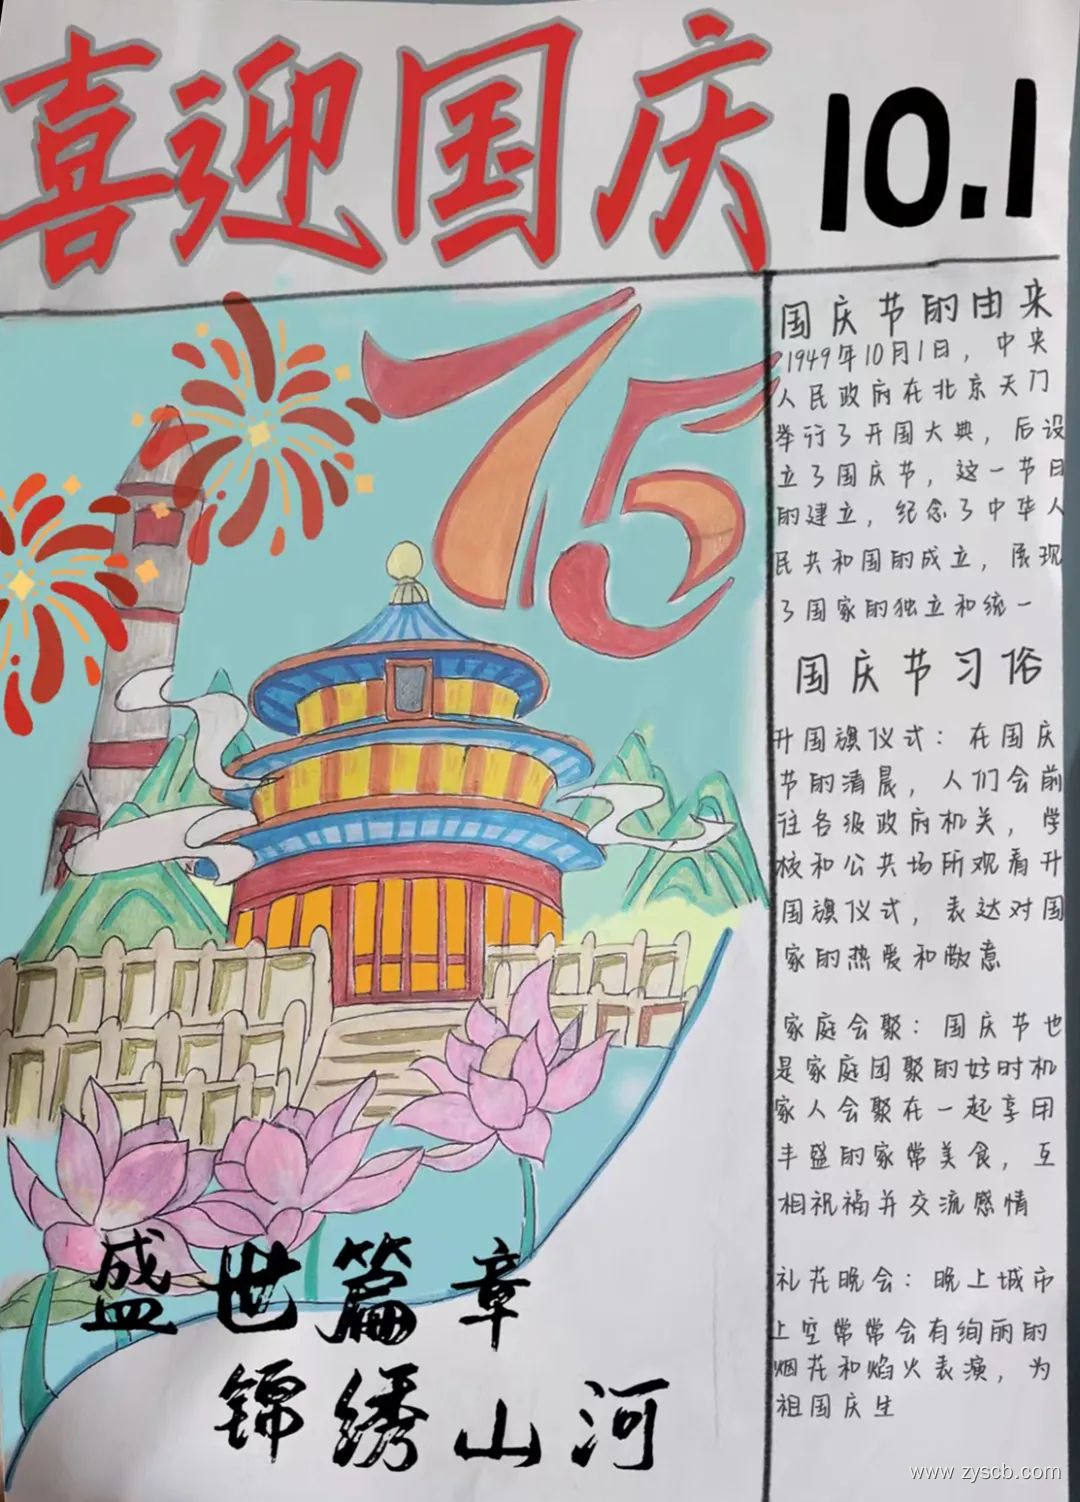 喜迎国庆
10.1
75
国庆节的由来
1949年10月1日，中央
人民政府在北京天门
举行了开国大典，后设
立了国庆节，这一节日
的建立，纪念了中华人
民共和国的成立，展现
了国家的独立和统一
国庆节习俗
升国旗仪式：在国庆
节的清晨，人们会前
往各级政府机关，学
校和公共场所观看升
国旗仪式，表达对国
家的热爱和敬意
家庭会聚：国庆节也
是家庭团聚的好时机
家人会聚在一起享用
丰盛的家常美食，互
相祝福并交流感情
礼花晚会：晚上城市
上空常常会有绚丽的
烟花和焰火表演，为
祖国庆生
盛世篇章
锦绣山河
www.zyscb.com